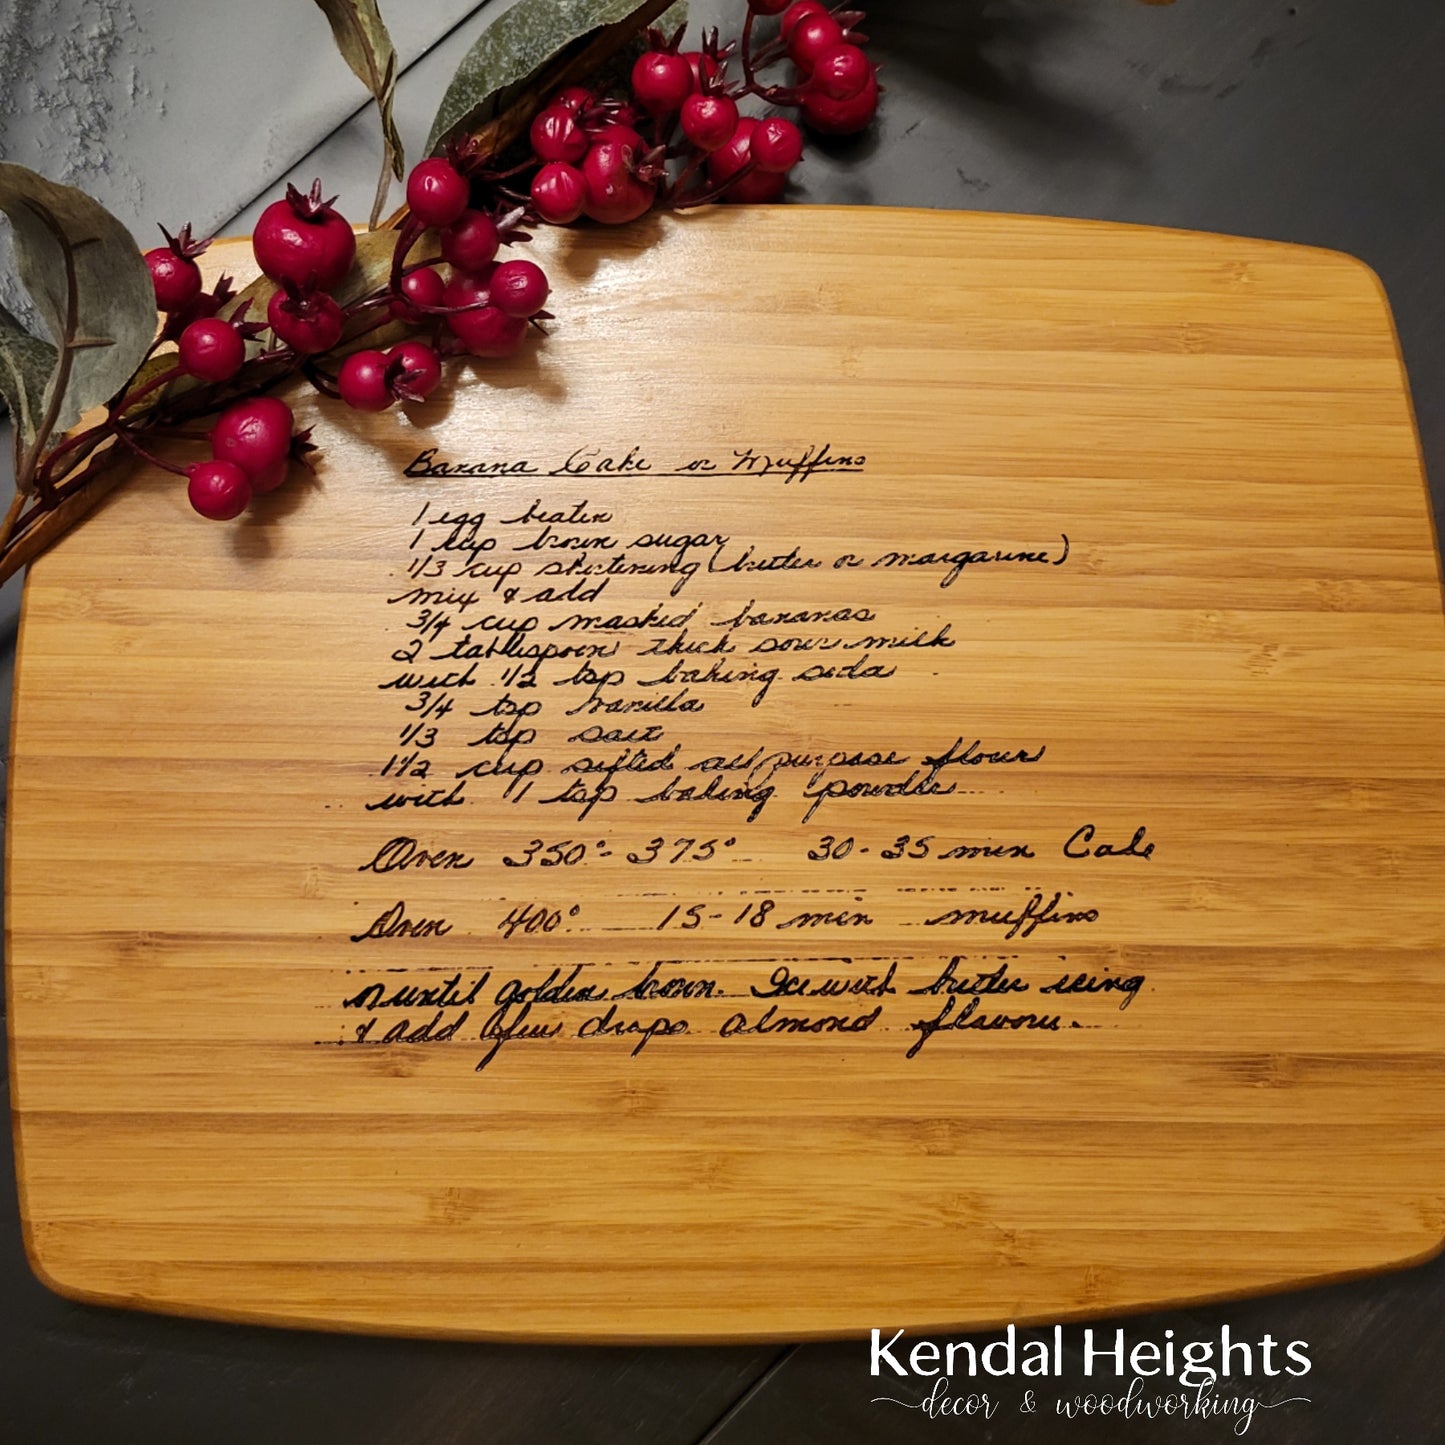 Banana Cake or Muffins
1 egg beaten
1 cup brown sugar
1/3 cup shortening (butter or margarine)
mix & add
3/4 cup mashed bananas
2 tablespoons thick sour milk
with 1/2 tsp baking soda
3/4 tsp vanilla
1/3 tsp salt
1 1/2 cup sifted all purpose flour
with 1 tsp baking powder
Oven 350°- 375° 30-35 min Cake
Oven 400° 15-18 min muffins
or until golden brown. Ice with butter icing
& add a few drops almond flavour.
Kendal Heights
decor & woodworking